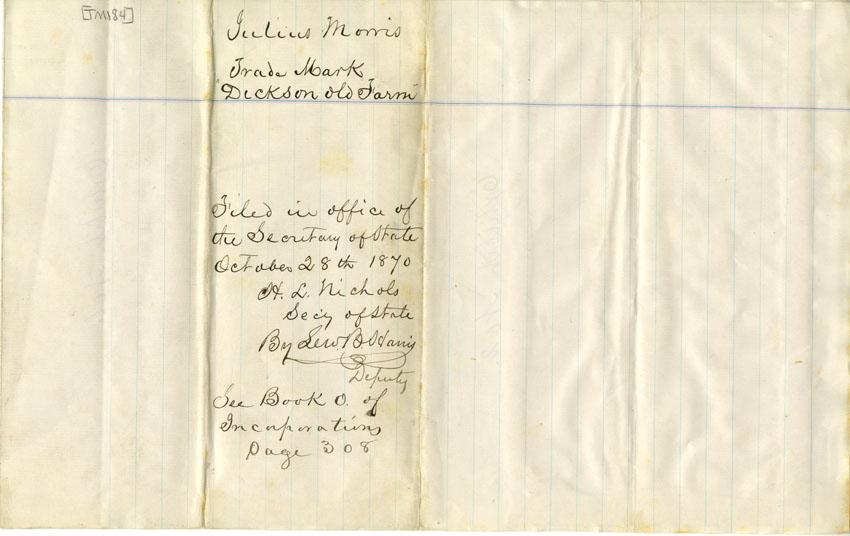 [TM184]
Julius Morris
Trade Mark
"Dickson old Farm"
Filed in office of
the Secretary of State
October 28th 1870
H. L. Nichols
Secy of State
By Lew B Harris
Deputy
See Book O. of
Incorporations
Page 308